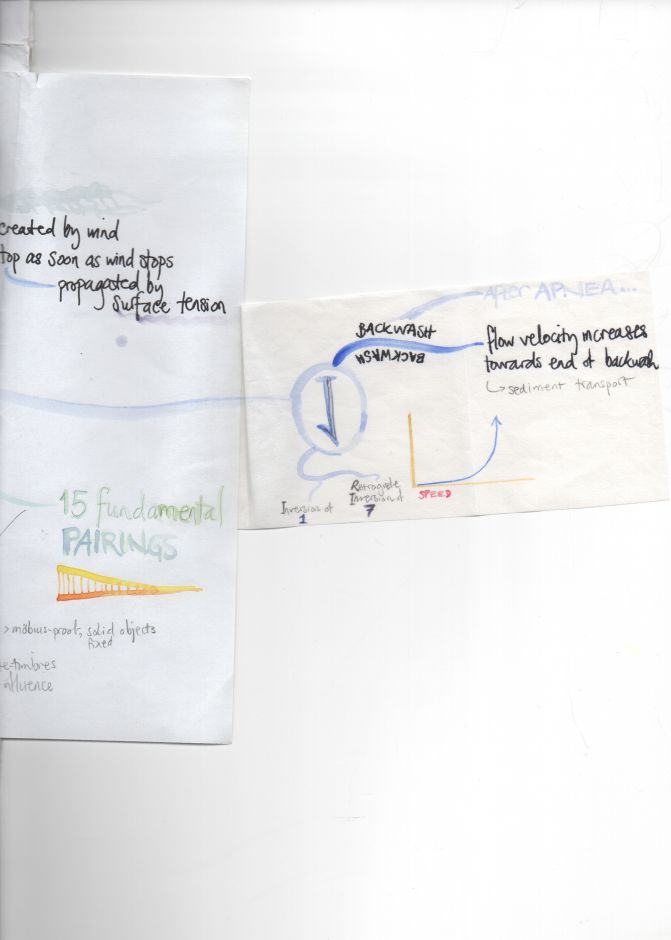 created by wind
top as soon as wind stops
propagated by
surface tension
After APNEA...
BACKWASH
BACKWASH
flow velocity increases
towards end of backwash
sediment transport
SPEED
Inversion of
1
Retrograde
Inversion of
7
15 fundamental
PAIRINGS
möbius-proof, solid objects
fixed
e-timbres
affluence